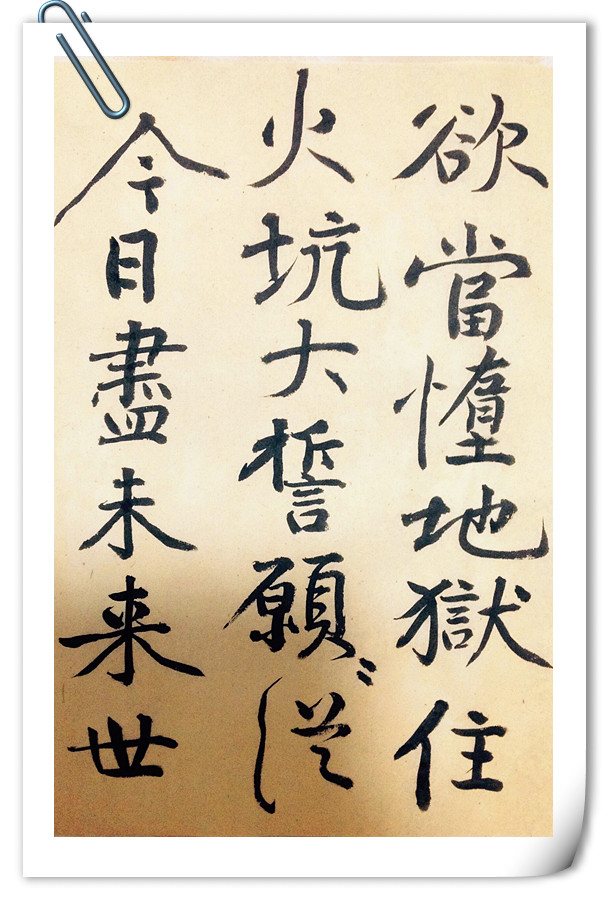 欲當墮地獄住
火坑大誓願〻從
今日盡未来世